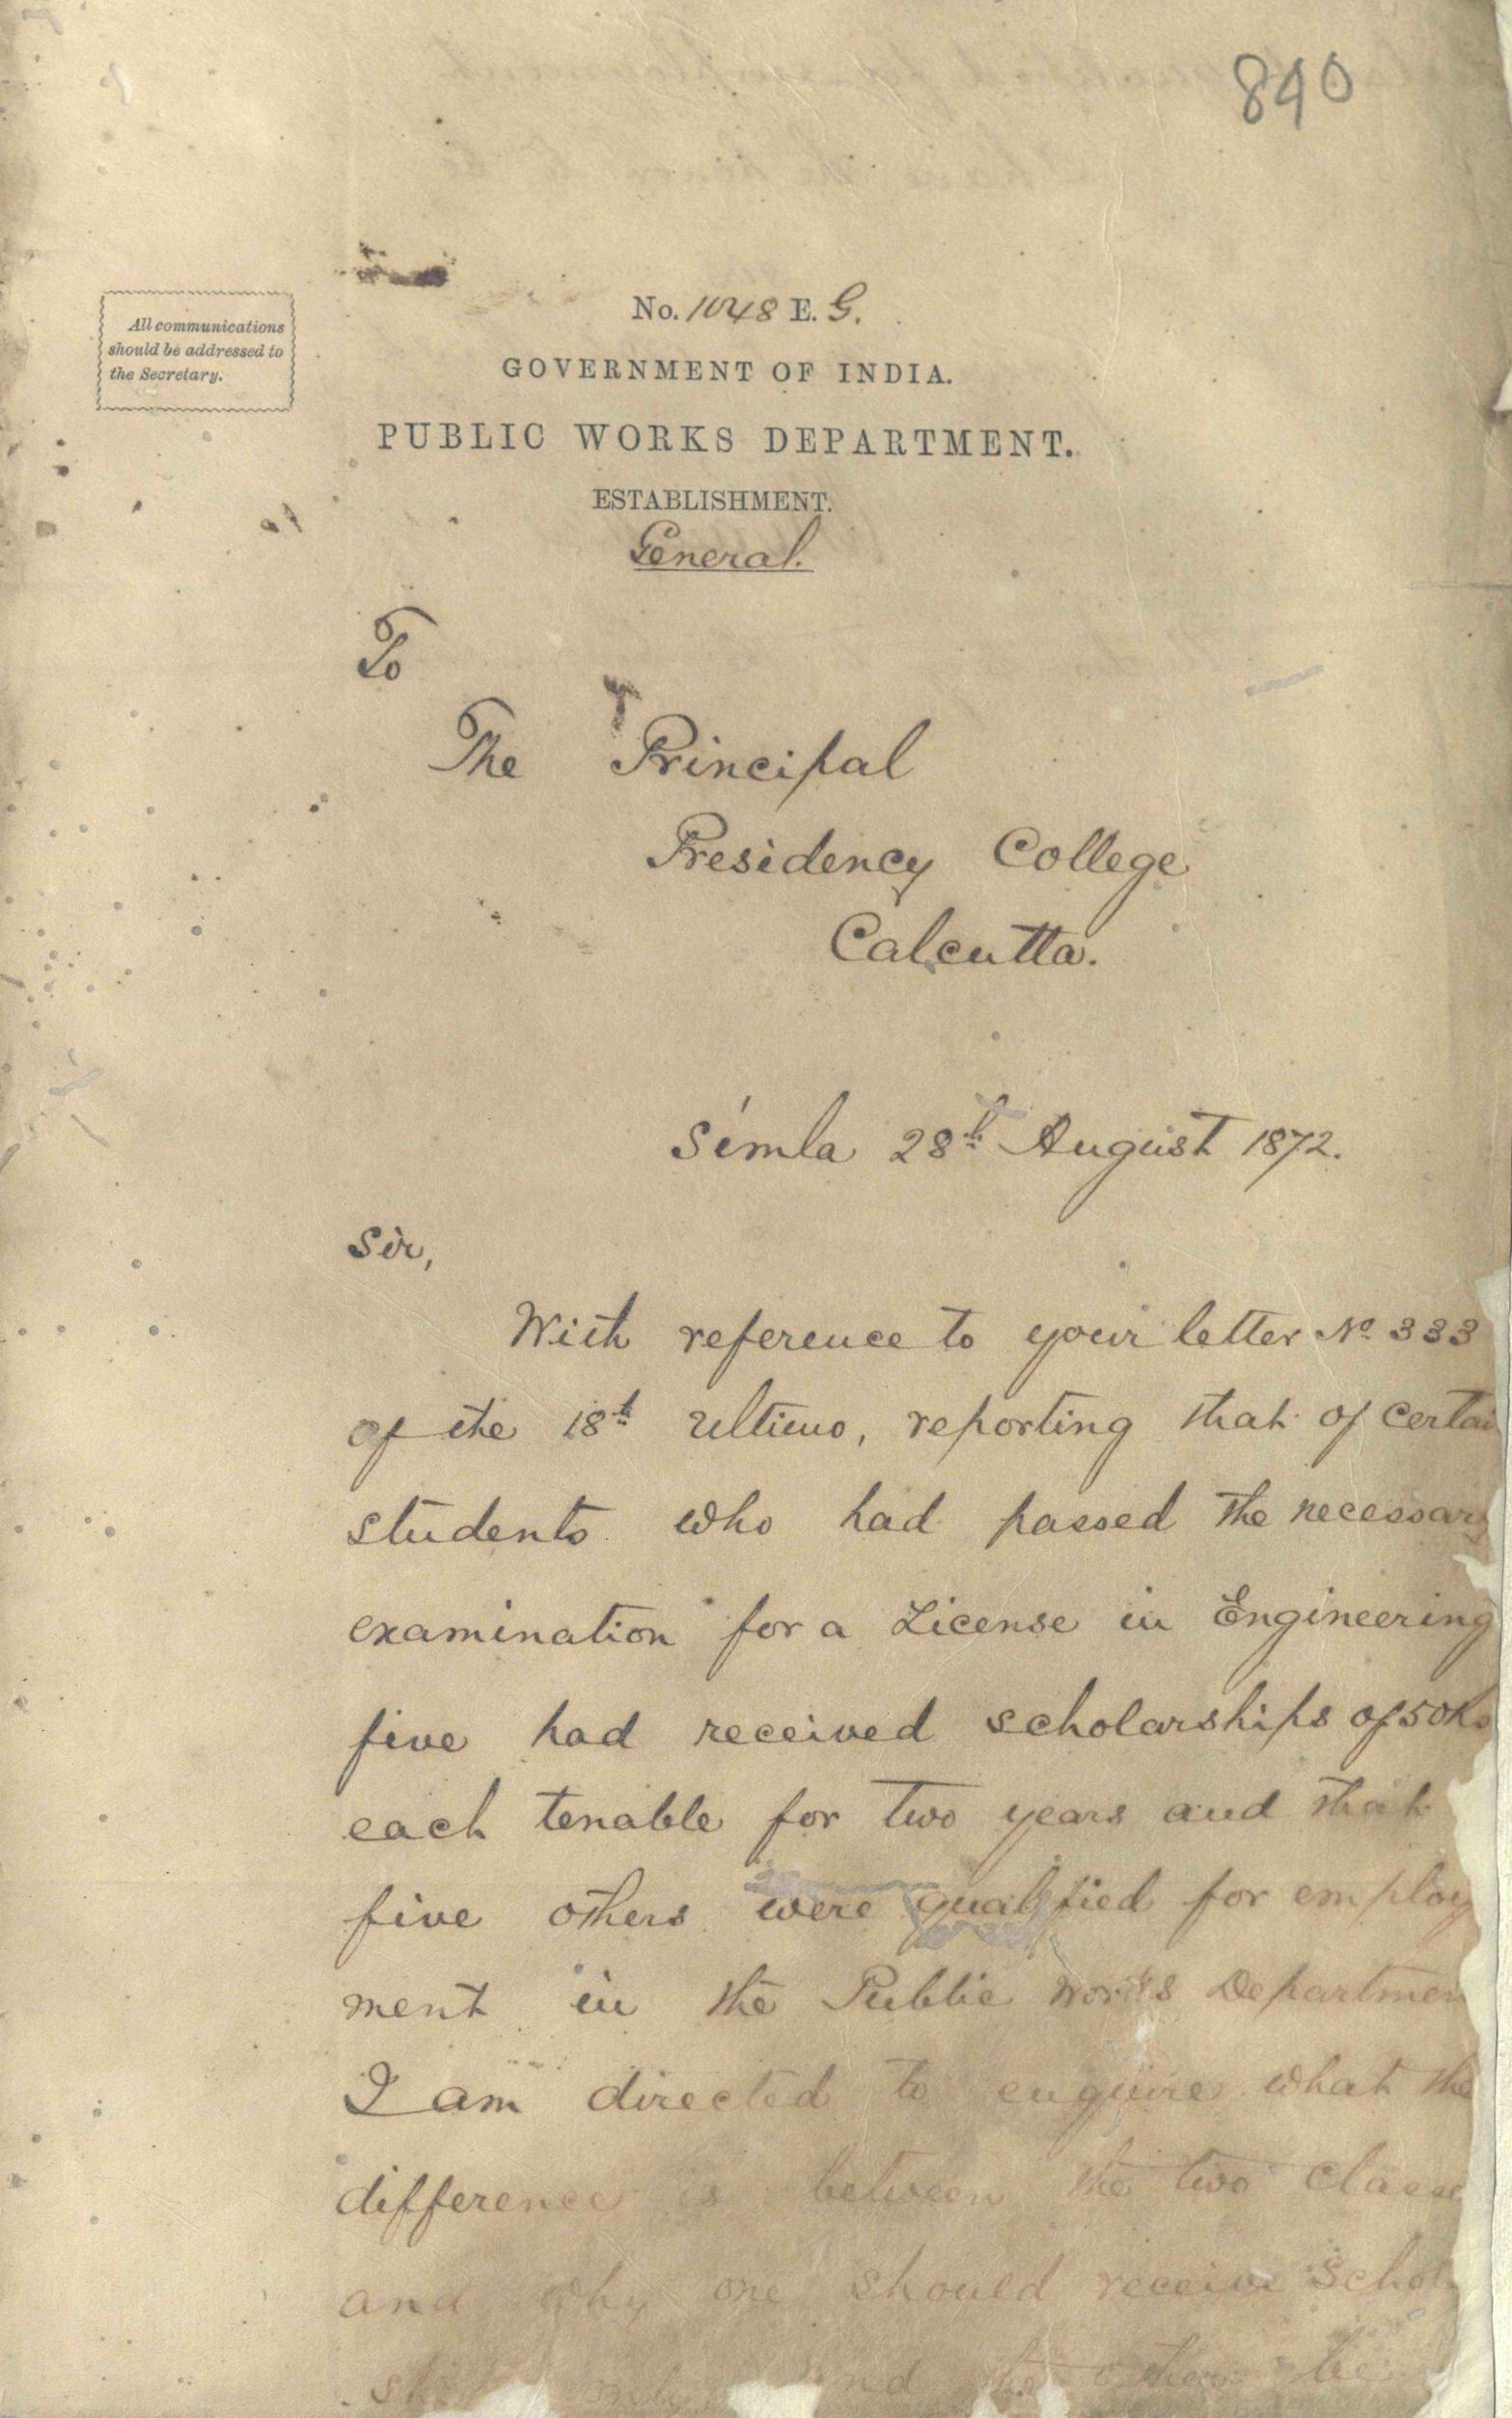 840
No. 1048 E. G.
All communications
should be addressed to
the Secretary.
GOVERNMENT OF INDIA.
PUBLIC WORKS DEPARTMENT.
ESTABLISHMENT.
General.
To
The Principal
Presidency College
Calcutta.
Simla 28th August 1872.
Sir,
With reference to your letter No. 333
of the 18th Ultimo, reporting that of certai
students who had passed the necessary
examination for a License in Engineering
five had received scholarships of 50 Rs
each tenable for two years and that
five others were qualified for employ
ment in the Public Works Departmen
I am directed to enquire what the
difference is between the two classe
and why one should receive Schol
only and the other be